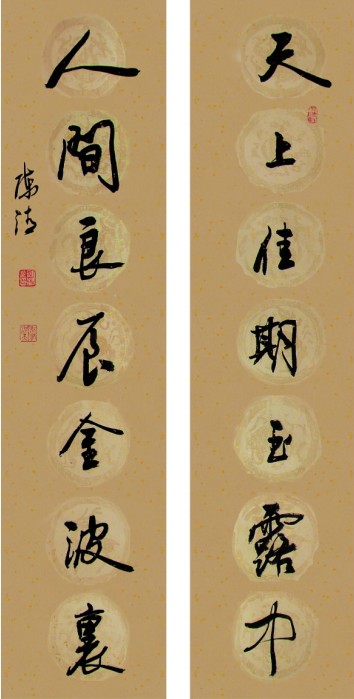 天上佳期玉露中
人間良辰金波裏